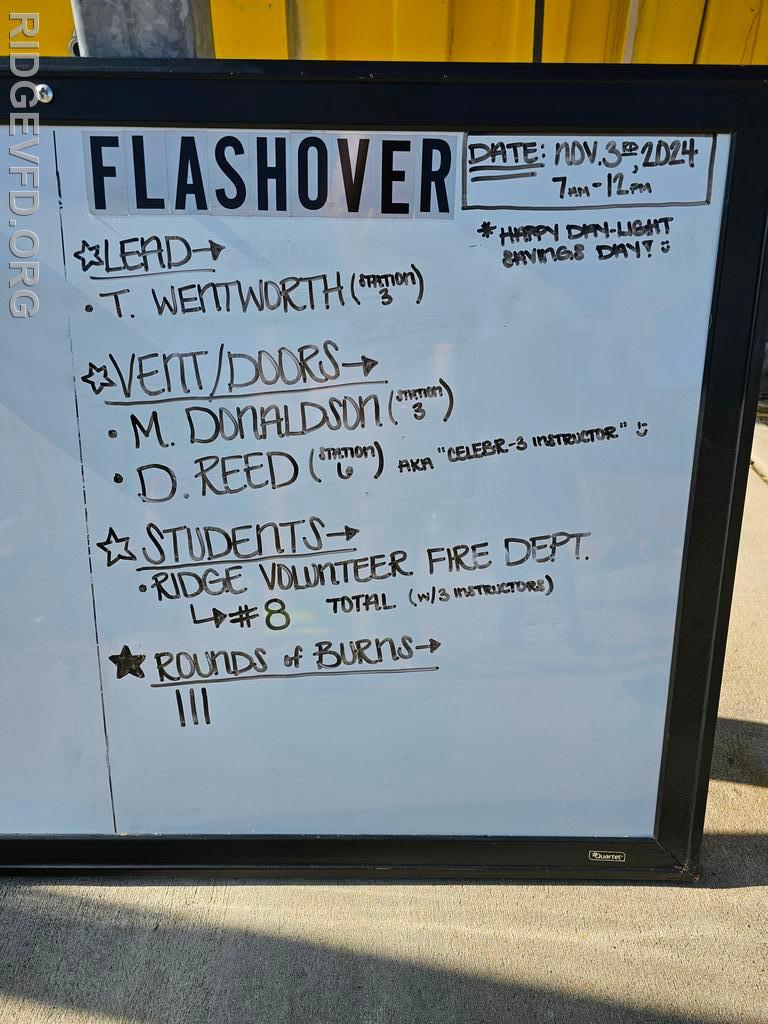 RIDGEVFD.ORG
FLASHOVER
DATE: NOV. 3RD, 2024
7AM - 12PM
* HAPPY DAY-LIGHT
SAVINGS DAY!
LEAD →
• T. WENTWORTH (STATION 3)
VENT/DOORS →
• M. DONALDSON (STATION 3)
• D. REED (STATION 6) AKA "CELEBR-3 INSTRUCTOR"
STUDENTS →
• RIDGE VOLUNTEER FIRE DEPT.
↳ #8 TOTAL (W/3 INSTRUCTORS)
ROUNDS of BURNS →
III
Quartet